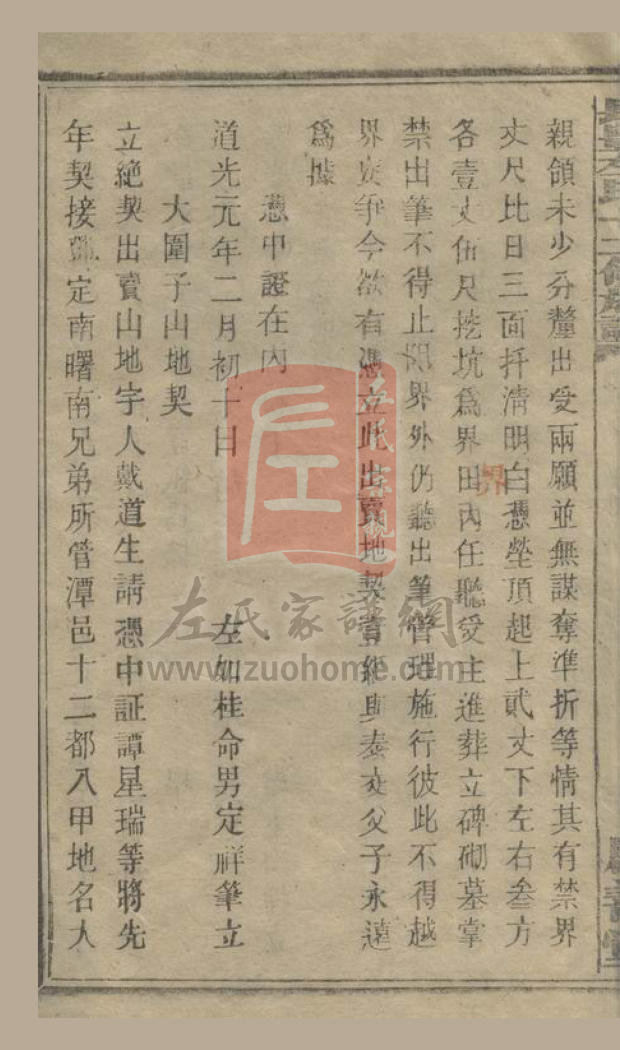 親領未少分釐出受兩願並無謀奪準折等情其有禁界
丈尺比日三面扦清明白憑塋頂起上貳丈下左右叁方
各壹丈伍尺挖坑爲界田內任聽受主進葬立碑砌墓掌
界
禁出筆不得止阻界外仍聽出筆管理施行彼此不得越
界妄爭今欲有憑立此出賣地契壹紙與泰交父子永遠
爲據
憑中證在內
道光元年二月初十日 左如桂命男定祥筆立
大圍子山地契
立絶契出賣山地字人戴道生請憑中証譚星瑞等將先
年契接鄧定南曙南兄弟所管潭邑十二都八甲地名大
左氏家譜網
www.zuohome.com